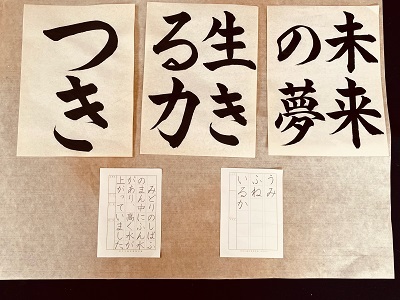 未来
の夢
生き
る力
つき
うみ
ふね
いるか
みどりのしばふ
のまん中にふん水
があり、高く水が
上がっていました。